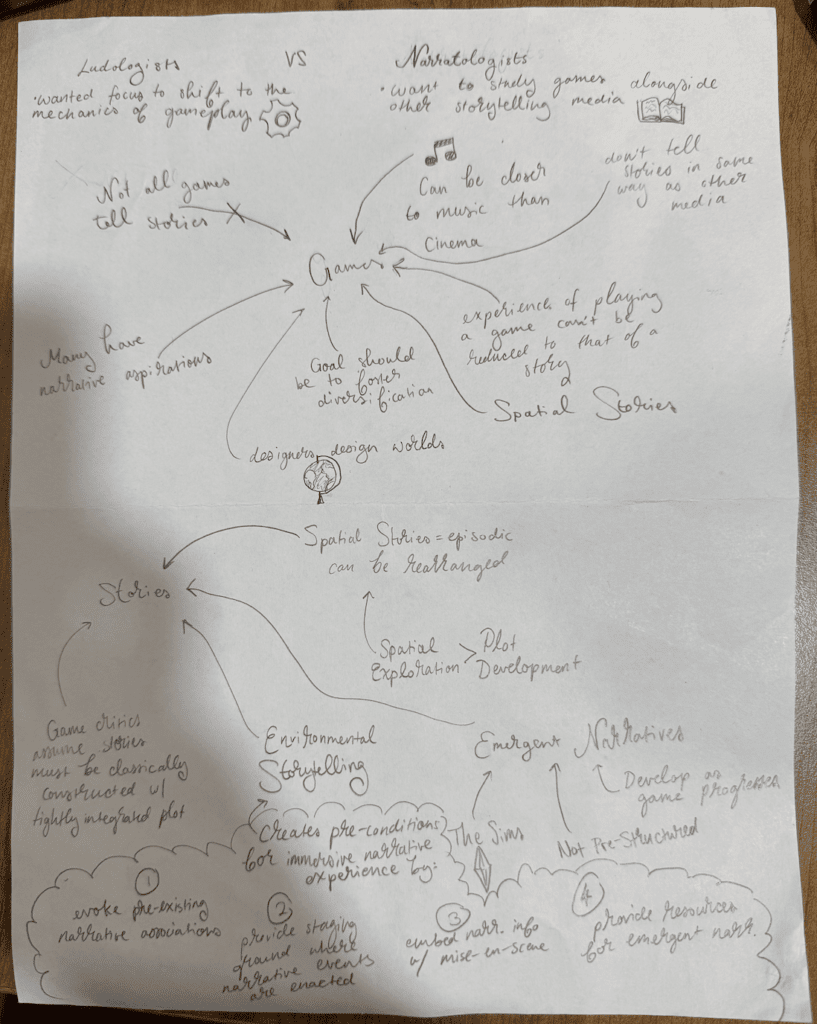 Ludologists
VS
Narratologists
• wanted focus to shift to the
mechanics of gameplay
• want to study games alongside
other storytelling media
Not all games
tell stories
Can be closer
to music than
Cinema
don't tell
stories in same
way as other
media
Games
Many have
narrative aspirations
Goal should
be to foster
diversification
experience of playing
a game can't be
reduced to that of a
story
Spatial Stories
designers design worlds
Spatial Stories = episodic
can be rearranged
Stories
Spatial
Exploration
>
Plot
Development
Game critics
assume stories
must be classically
constructed w/
tightly integrated plot
Environmental
Storytelling
Emergent Narratives
Develop as
game progresses
Not Pre-Structured
The Sims
creates pre-conditions
for immersive narrative
experience by:
1
evoke pre-existing
narrative associations
2
provide staging
ground where
narrative events
are enacted
3
embed narr. info
w/ mise-en-scene
4
provide resources
for emergent narr.